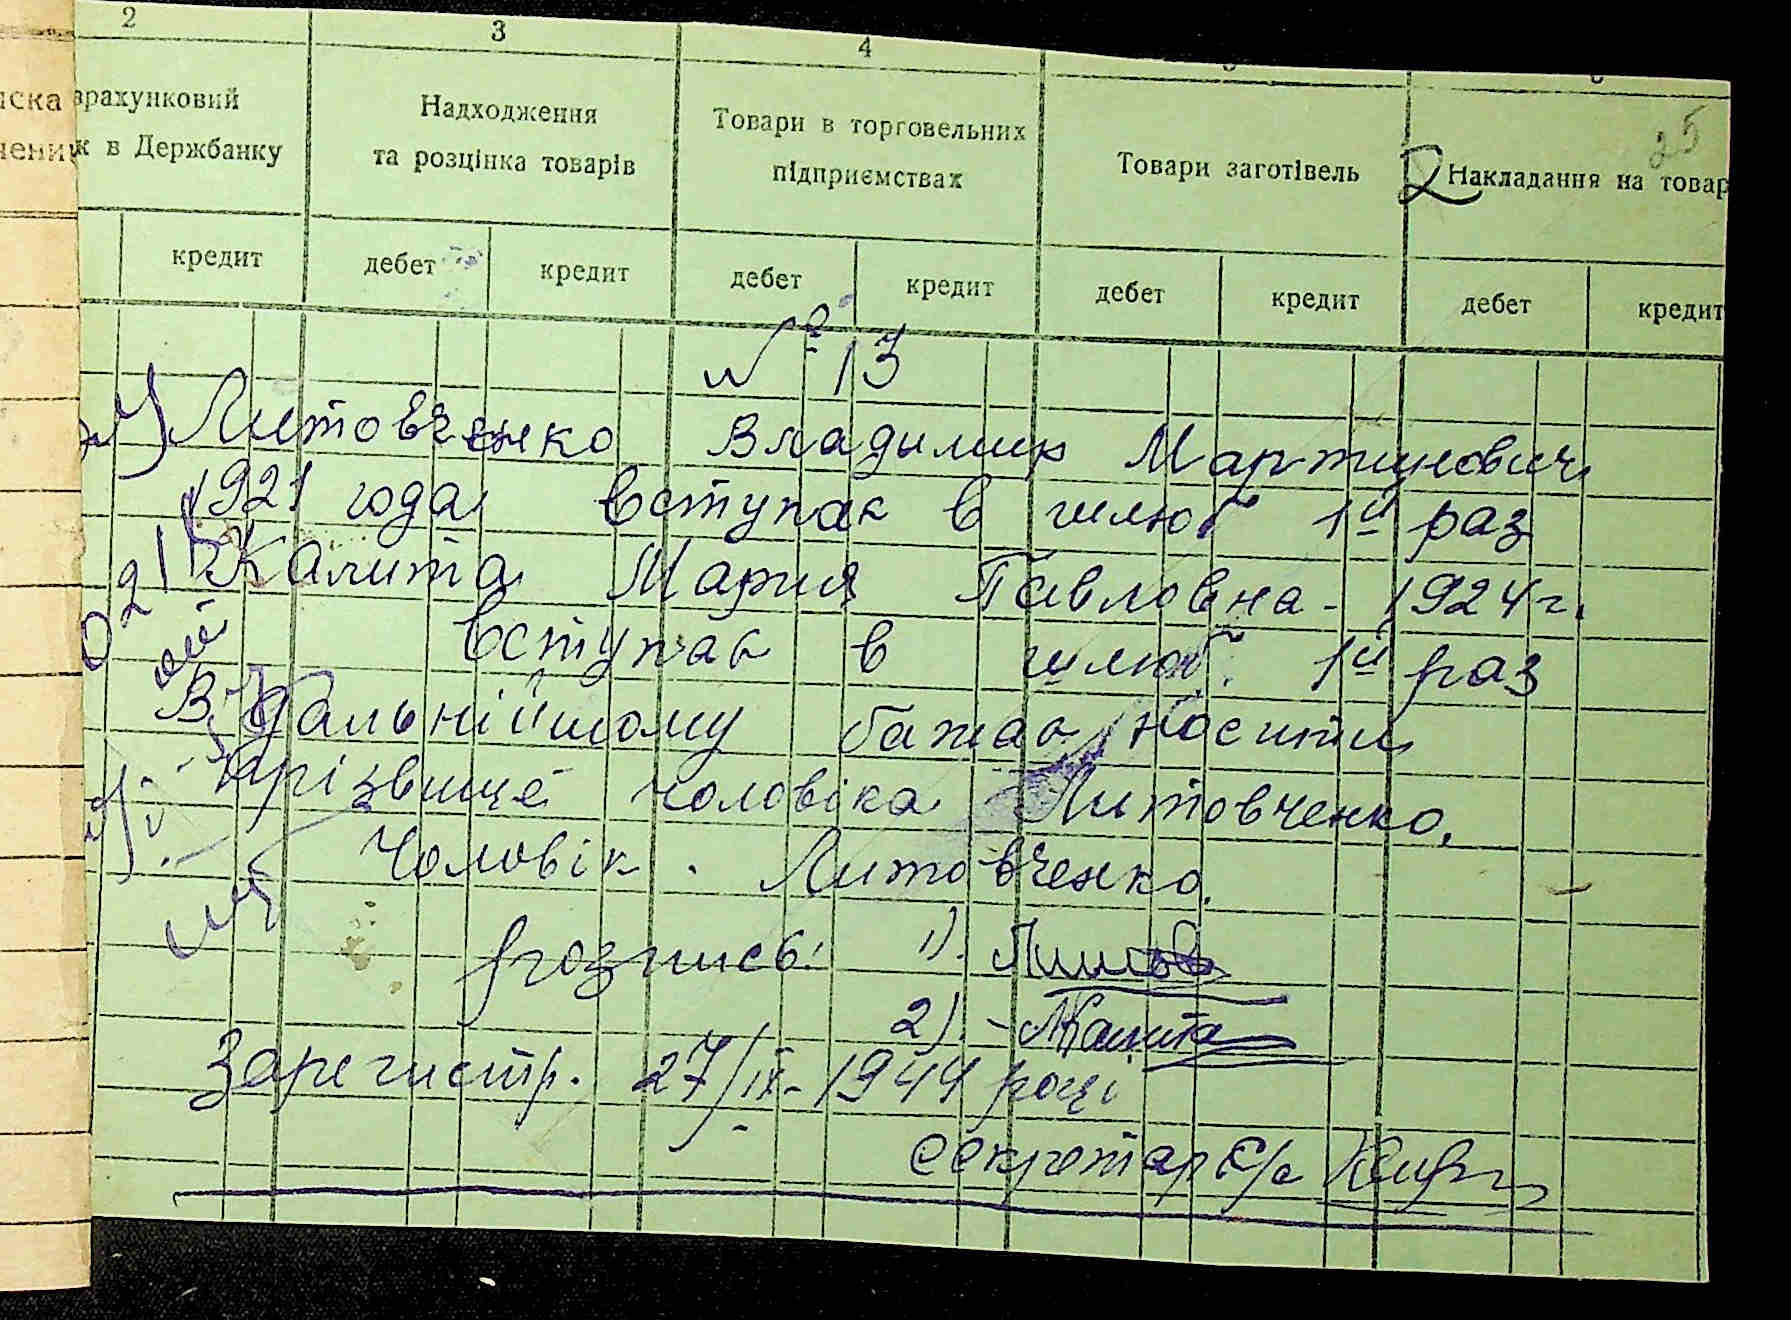 2 3 4
25
рахунковий Надходження Товари в торговельних Товари заготівель 2 Накладання на товар
к в Держбанку та розцінка товарів підприємствах
кредит дебет кредит дебет кредит дебет кредит дебет кредит
№ 13
Литовченко Владимир Мартинович
1921 года вступає в шлюб 1й раз
Калита Мария Павловна - 1924 г.
вступає в шлюб 1й раз
В дальнійшому бажає носити
прізвище чоловіка Литовченко.
Чоловік. Литовченко.
розпись: 1). Литов
2). Калита
Зарегистр. 27/IX - 1944 році
секретар с/р